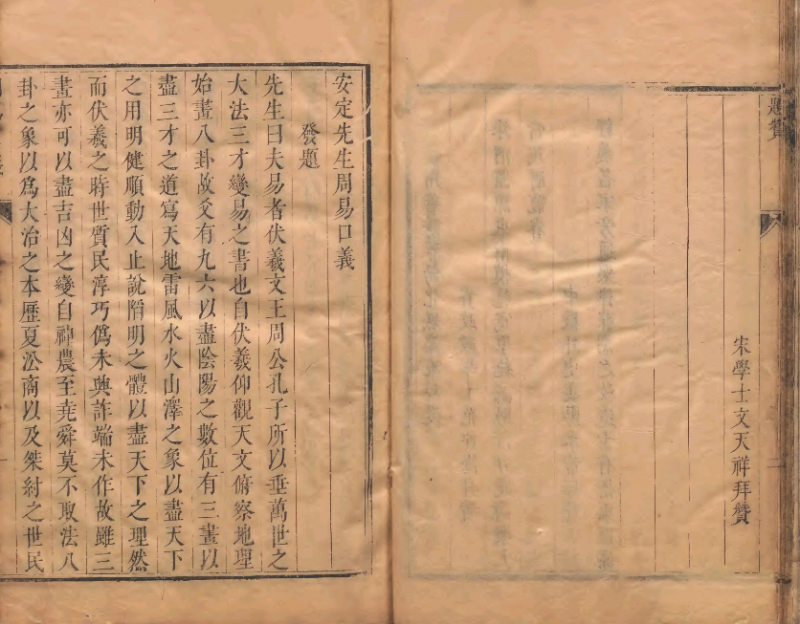 題贊
二
宋學士文天祥拜贊
安定先生周易口義
發題
先生曰夫易者伏羲文王周公孔子所以垂萬世之
大法三才變易之書也自伏羲仰觀天文俯察地理
始畫八卦故爻有九六以盡陰陽之數位有三畫以
盡三才之道寫天地雷風水火山澤之象以盡天下
之用明健順動入止說陷明之體以盡天下之理然
而伏羲之時世質民淳巧僞未興詐端未作故雖三
畫亦可以盡吉凶之變自神農至堯舜莫不取法八
卦之象以爲大治之本歷夏泓商以及桀紂之世民